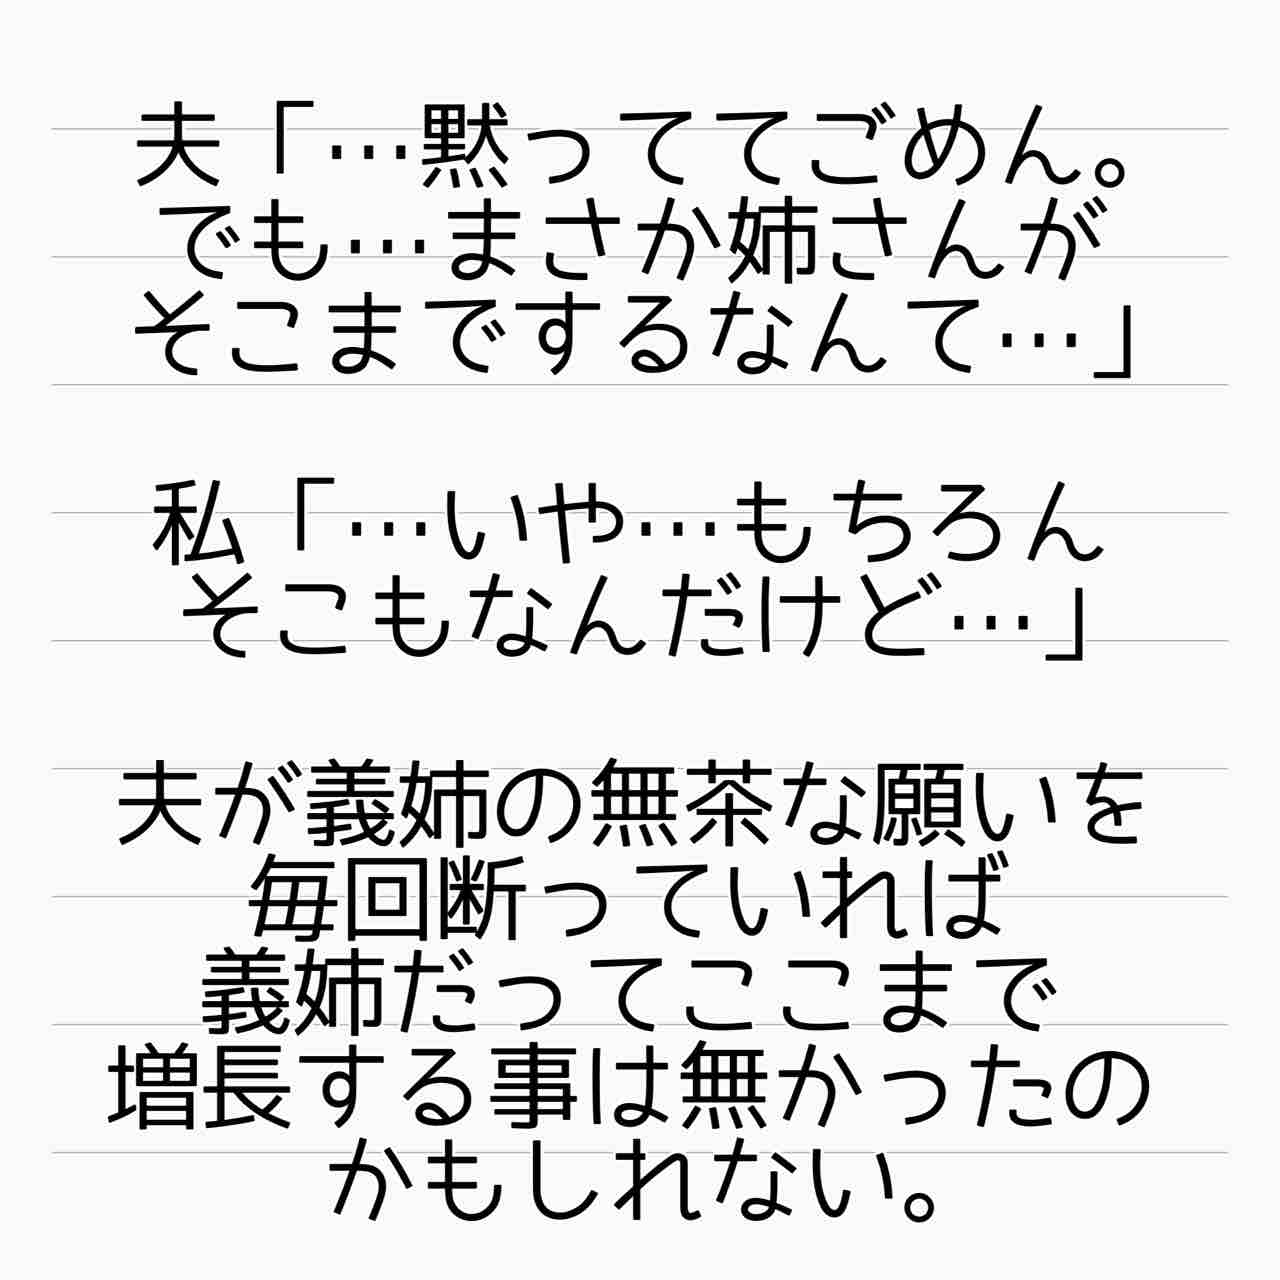 夫「…黙っててごめん。
でも…まさか姉さんが
そこまでするなんて…」
私「…いや…もちろん
そこもなんだけど…」
夫が義姉の無茶な願いを
毎回断っていれば
義姉だってここまで
増長する事は無かったの
かもしれない。